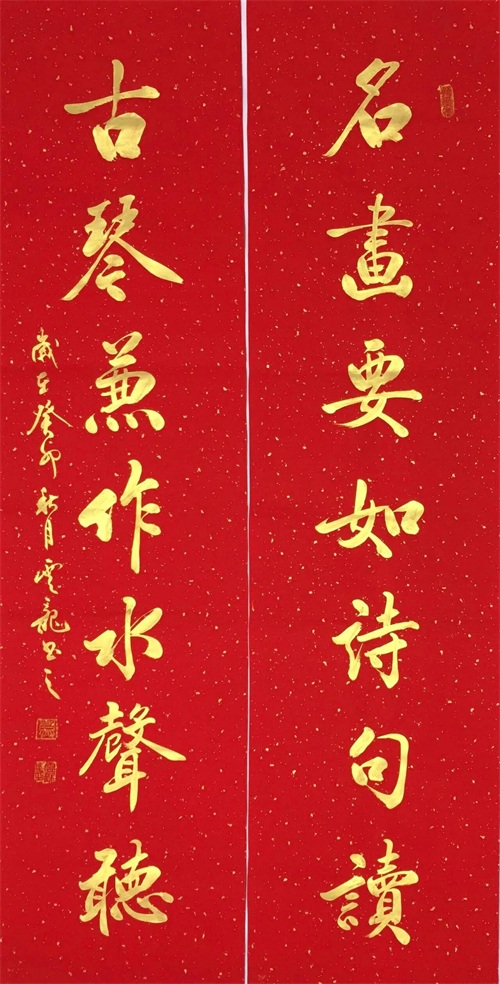 名畫要如詩句讀
古琴兼作水聲聽
歲在癸卯秋月雲龍書之